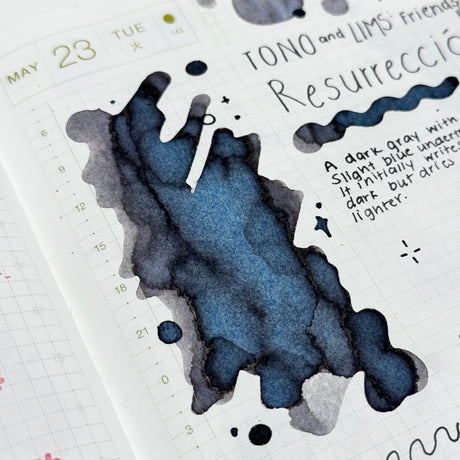 MAY 23 TUE
火
TONO and LIMS' Friends
Resurrecció
A dark gray with
slight blue undert
It initially writes
dark but dries
lighter.
6
9
12
15
18
21
0
3